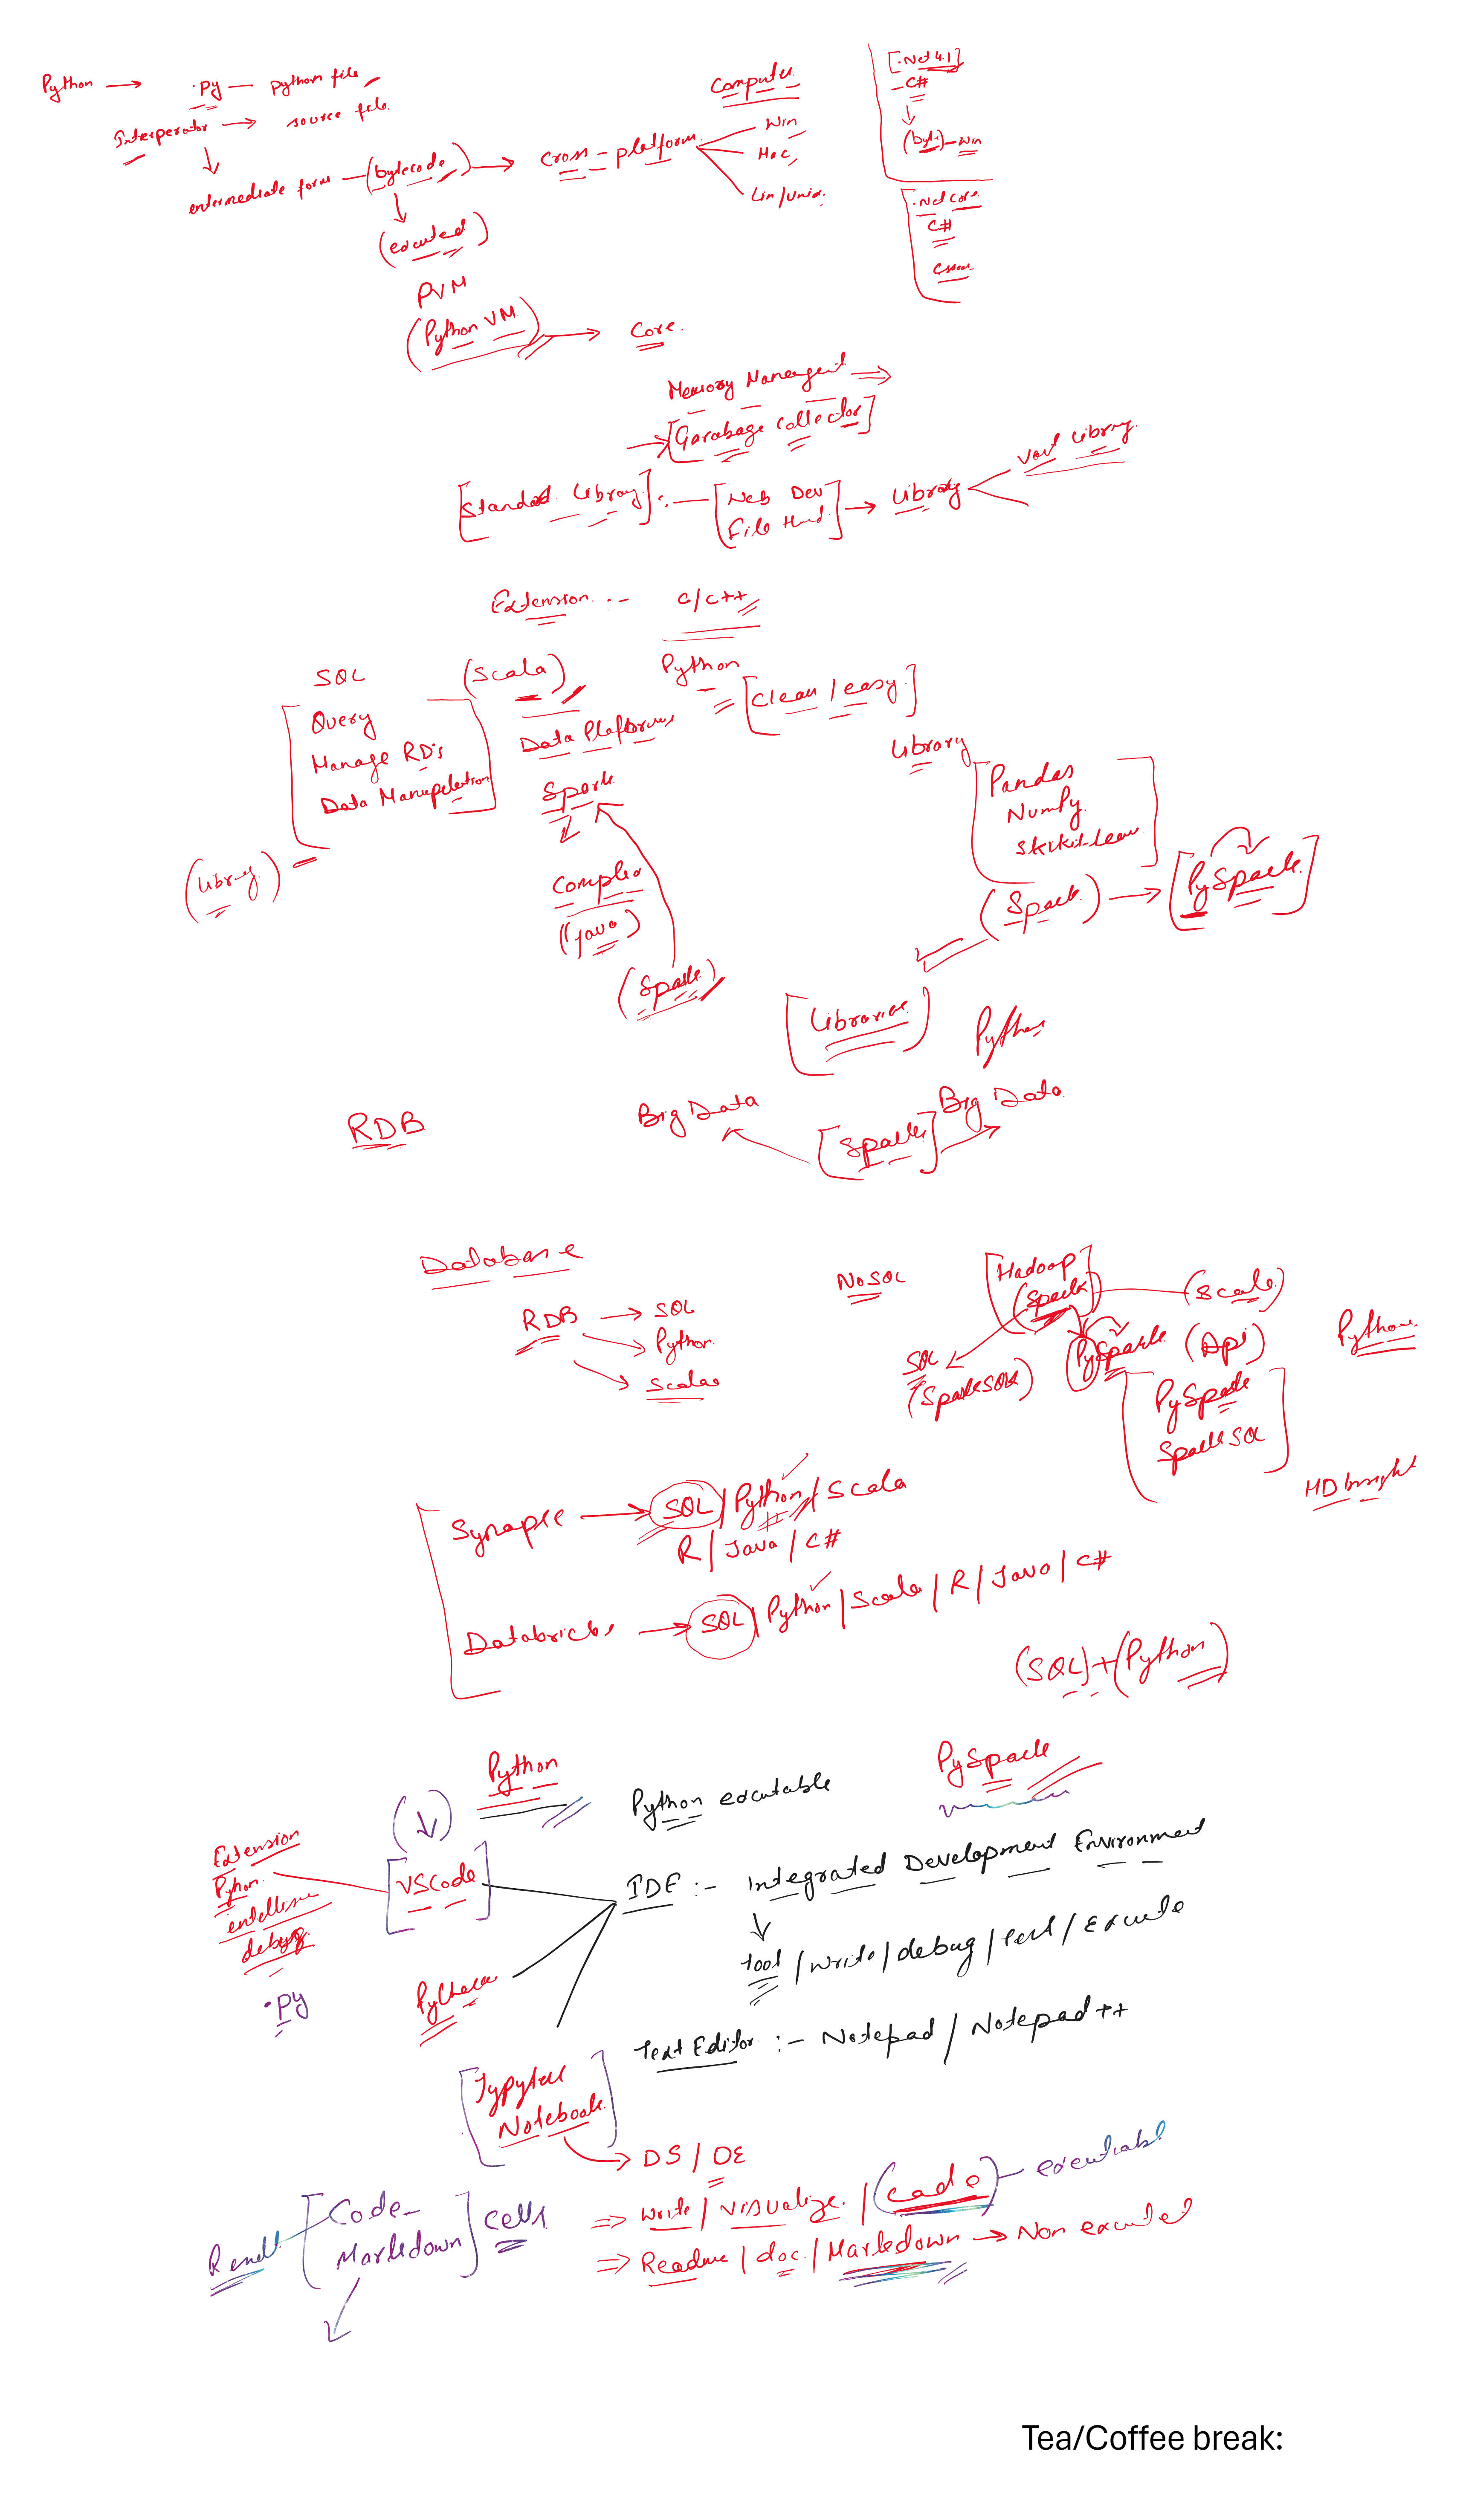 Python → .py — python file
Interperator → source file
entermediate form — (bytecode) → Cross-platform
Computer
Win
Mac
Lin/Unix
[.Net 4.1]
C#
(byte) - Win
.Net core
C#
(excuted)
PVM
(Python VM) → Core.
Memory Managent ⇒
→ [Garabage collector]
[Standard Library] :- [Web Dev
File Hand] → Library
Vast Library
Extension :- C/C++
SQL
Query
Manage RDs
Data Manupelation
(Library)
(Scala)
Data Platforms
Spark
Complex
(Java)
(Spark)
Python
[Clean/easy]
Library
Pandas
NumPy
Skikit-lear
(Spark) → [PySpark]
[Libraries]
Python
RDB
Big Data
[Spark]
Big Data
Database
RDB → SQL
→ Python
→ Scala
NoSQL
[Hadoop
(Spark) — (Scala)
SQL
(SparkSQL)
PySpark (Api)
Python
PySpark
Spark SQL
HDInsight
Synapse → SQL / Python / Scala
R / Java / C#
Databricks → SQL / Python / Scala / R / Java / C#
(SQL)+(Python)
Python
Python excutable
PySpark
Extension
Python
entellisense
debug
.py
[VSCode]
IDE :- Integrated Development Environment
tool / write / debug / test / Excute
PyCharm
Text Editor :- Notepad / Notepad++
[Jypyter
Notebook]
→ DS / DE
[Code
Markdown] cells
⇒ Write / Visualize / (code) - excutabl
⇒ Readme / doc / Markdown → Non excuted
Tea/Coffee break: